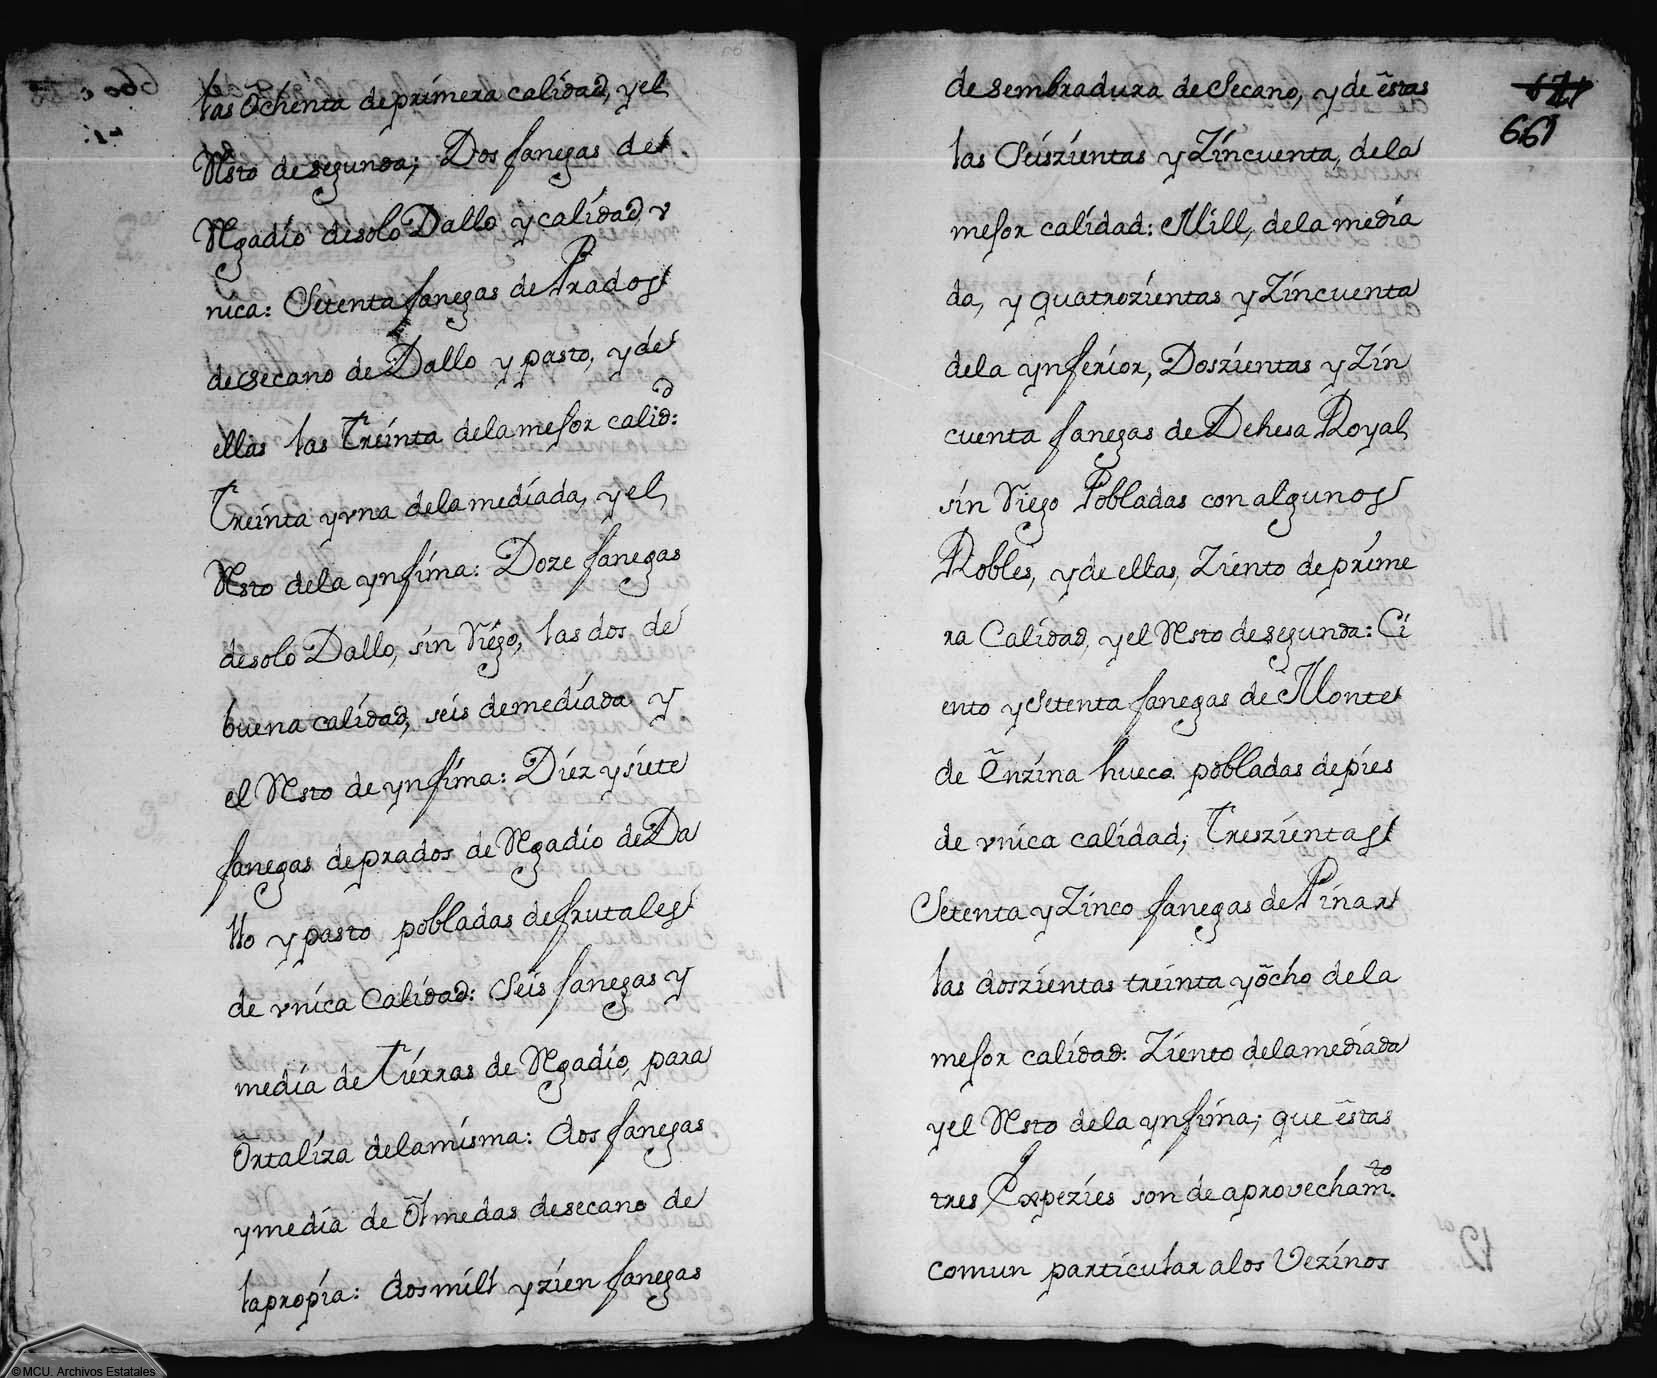 las õchenta de primera calidad, y el
Rsto de segunda; Dos fanegas de
Rgadio de solo Dallo y calidad v
nica: Setenta fanegas de Prados
de secano de Dallo y pasto, y de
ellas las treinta de la mejor calid.d:
treinta y vna de la mediada, y el
Rsto de la ynfima: Doze fanegas
de solo Dallo, sin Riego, las dos de
buena calidad, seis de mediada y
el Rsto de ynfima: Diez y siete
fanegas de prados de Rgadio de Da
llo y pasto pobladas de frutales
de vnica Calidad: Seis fanegas y
media de tierras de Rgadio, para
õrtaliza de la misma: dos fanegas
y media de õlmedas de secano de
la propia: dos mill y zien fanegas
de sembradura de Secano, y de ẽstas
las Seiszientas y Zincuenta, de la
mejor calidad: Mill, de la media
da, y quatrozientas y Zincuenta
de la ynferior, Doszientas y Zin
cuenta fanegas de Dehesa Royal,
sin Riego Pobladas con algunos
Robles, y de ellas, Ziento de prime
ra Calidad, y el Rsto de segunda: Ci
ento y Setenta fanegas de Monte
de ẽnzina hueco pobladas de pies
de vnica calidad; treszientas
Setenta y Zinco fanegas de Pinar
las doszientas treinta y õcho de la
mejor calidad: Ziento de la mediada
y el Rsto de la ynfima; que ẽstas
tres Expezies son de aprovecham.to
comun particular a los Vezinos
661
©MCU. Archivos Estatales